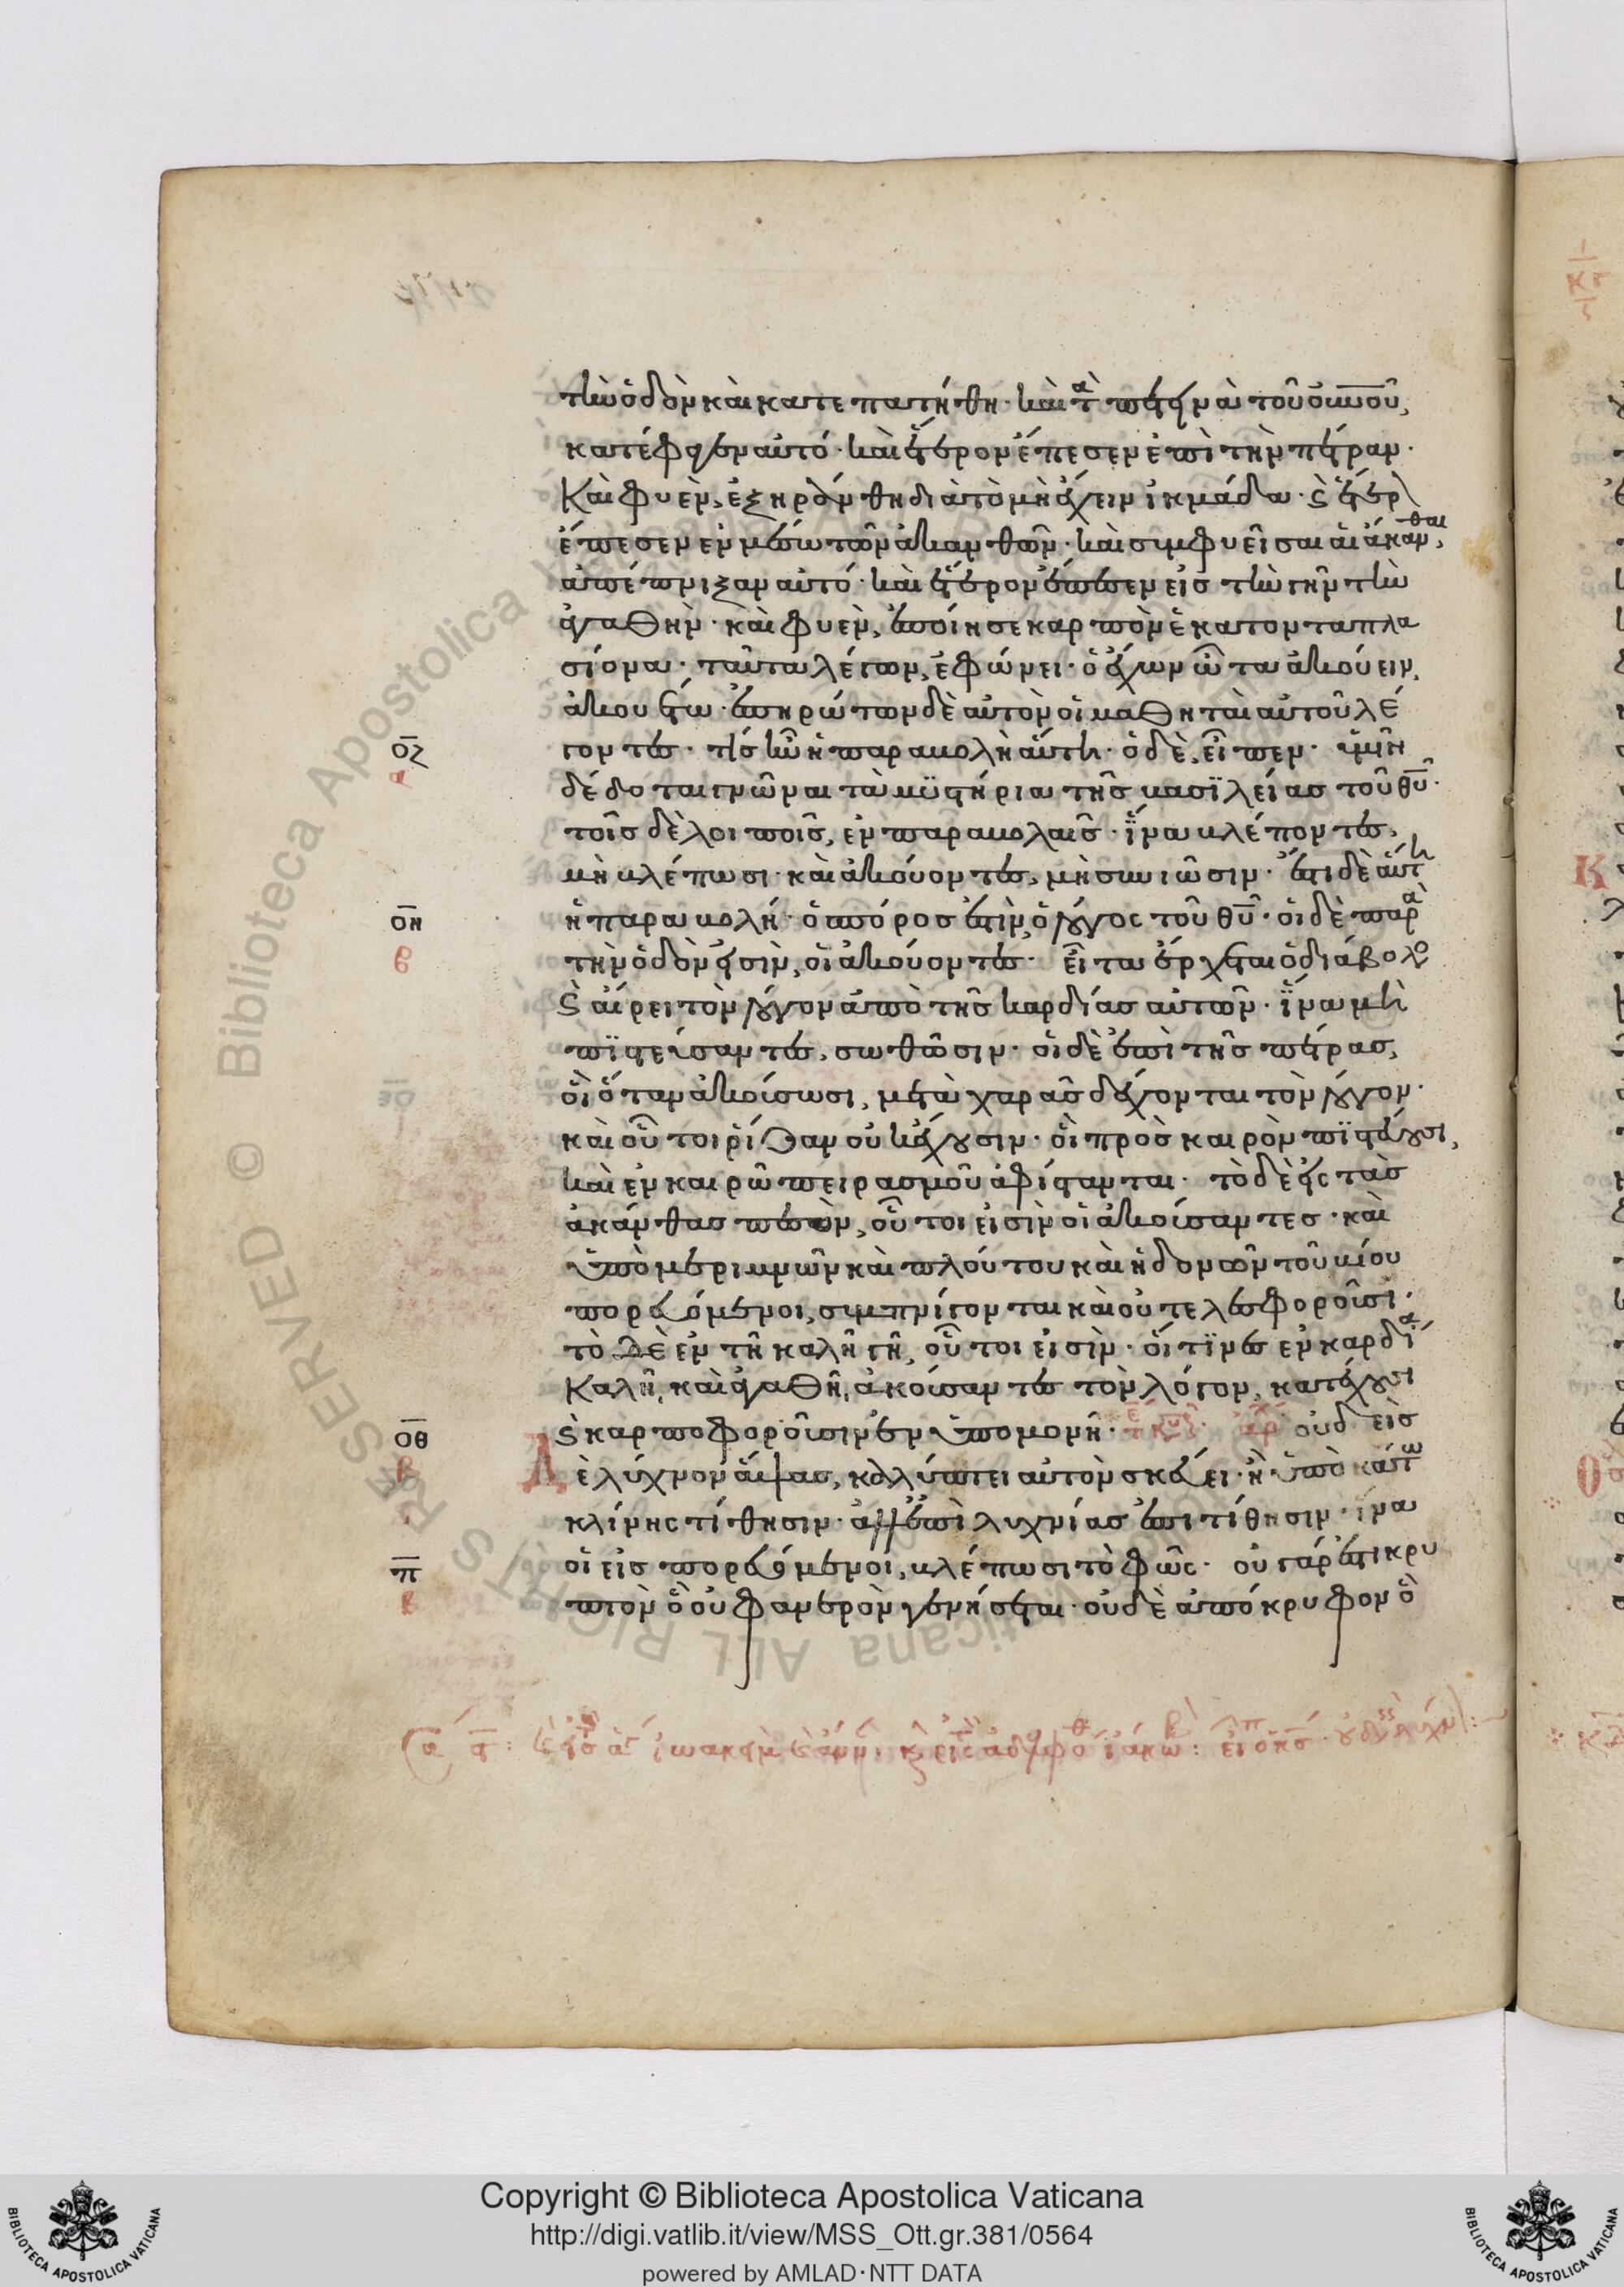 τὴν ὁδὸν καὶ κατεπατήθη· καὶ τὰ πετεινὰ τοῦ οὐνοῦ,
κατέφαγεν αὐτό· καὶ ἕτερον ἔπεσεν ἐπὶ τὴν πέτραν·
Καὶ φυὲν, ἐξηράνθη διὰ τὸ μὴ ἔχειν ἰκμάδα· ϗ ἕτερ
ἔπεσεν ἐν μέσω τῶν ἀκανθῶν· καὶ συμφυεῖσαι αἱ ἄκανθαι,
ἀπέπνιξαν αὐτό· καὶ ἕτερον ἔπεσεν εἰς τὴν γῆν τὴν
ἀγαθὴν· καὶ φυὲν, ἐποίησε καρπὸν ἑκατονταπλα
σίονα· ταῦτα λέγων, ἐφώνει· ὁ ἔχων ὦτα ἀκούειν,
ἀκουέτω· ἐπηρώτων δὲ αὐτὸν οἱ μαθηταὶ αὐτοῦ λέ
οζ γοντες· τίς εἴη ἡ παραβολὴ αὕτη· ὁ δὲ, εἶπεν· ὑμῖν
α δέδοται γνῶναι τὰ μυστήρια τῆς βασιλείας τοῦ θυ·
τοῖς δὲ λοιποῖς, ἐν παραβολαῖς· ἵνα βλέποντες,
μὴ βλέπωσι· καὶ ἀκούοντες, μὴ συνιῶσιν· ἔστι δὲ αὕτη
οη ἡ παραβολή· ὁ σπόρος ἐστὶν, ὁ λόγος τοῦ θυ· οἱ δὲ παρὰ
β τὴν ὁδὸν εἰσὶν, οἱ ἀκούοντες· εἶτα ἔρχεται ὁ διάβολος
ϗ αἴρει τὸν λόγον ἀπὸ τῆς καρδίας αὐτῶν· ἵνα μὴ
πιστεύσαντες, σωθῶσιν· οἱ δὲ ἐπὶ τῆς πέτρας,
οἳ ὅταν ἀκούσωσι, μετὰ χαρᾶς δέχονται τὸν λόγον·
καὶ οὗτοι ῥίζαν οὐκ ἔχουσιν· οἳ πρὸς καιρὸν πιστεύουσι,
καὶ ἐν καιρῶ πειρασμοῦ ἀφίστανται· τὸ δὲ εἰς τὰς
ἀκάνθας πεσὸν, οὗτοι εἰσὶν οἱ ἀκούσαντες· καὶ
ὑπὸ μεριμνῶν καὶ πλούτου καὶ ἡδονῶν τοῦ βίου
πορευόμενοι, συμπνίγονται καὶ οὐ τελεσφοροῦσι·
τὸ δὲ ἐν τῆ καλῆ γῆ, οὗτοι εἰσὶν· οἵτινες ἐν καρδία
Καλῆ, καὶ ἀγαθῆ, ἀκούσαντες τὸν λόγον, κατέχουσι
οθ ϗ καρποφοροῦσιν ἐν ὑπομονῆ· οὐδεὶς
β Δὲ λύχνον ἅψας, καλύπτει αὐτὸν σκεύει· ἢ ὑποκάτω
κλίνης τίθησιν· ἀλλ' ἐπὶ λυχνίας ἐπιτίθησιν· ἵνα
π οἱ εἰσπορευόμενοι, βλέπωσι τὸ φῶς· οὐ γάρ ἐστι κρυ
β πτὸν ὃ οὐ φανερὸν γενήσεται· οὐδὲ ἀπόκρυφον ὃ
Copyright © Biblioteca Apostolica Vaticana
http://digi.vatlib.it/view/MSS_Ott.gr.381/0564
powered by AMLAD·NTT DATA
BIBLIOTECA APOSTOLICA VATICANA
BIBLIOTECA APOSTOLICA VATICANA